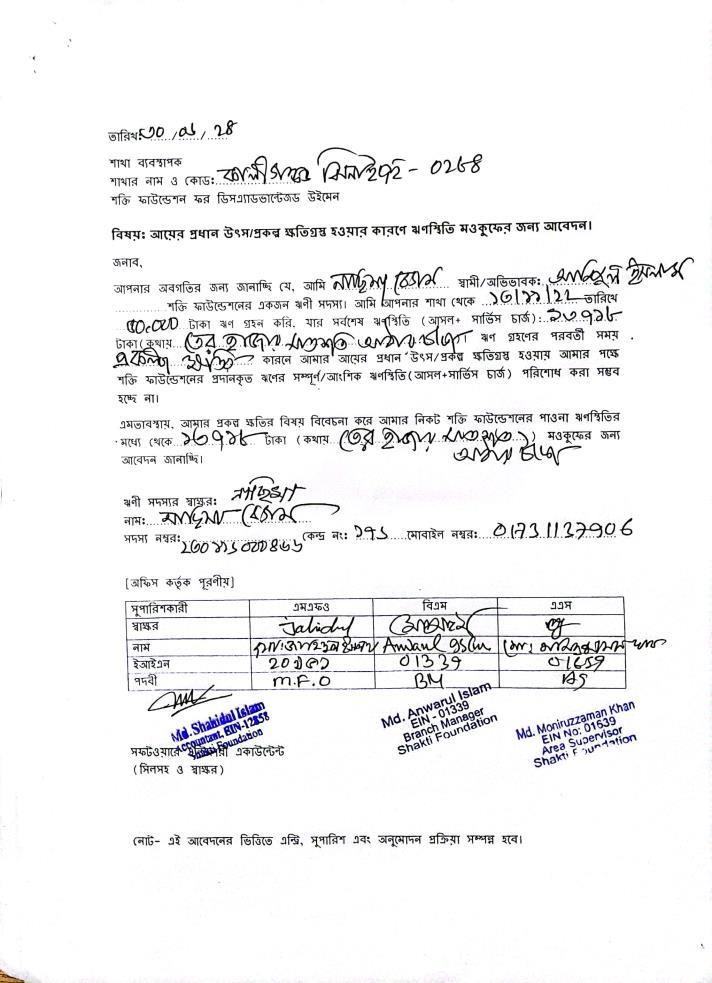 তারিখ:
শাখা ব্যবস্থাপক
শাখার নাম ও কোড: কালীগঞ্জ ঝিনাইদহ - ০২৮৪
শক্তি ফাউন্ডেশন ফর ডিসএ্যাডভান্টেজড উইমেন
বিষয়: আয়ের প্রধান উৎস/প্রকল্প ক্ষতিগ্রস্ত হওয়ার কারণে ঋণস্থিতি মওকুফের জন্য আবেদন।
জনাব,
আপনার অবগতির জন্য জানাচ্ছি যে, আমি নাছিমা বেগম স্বামী/অভিভাবক: ইসলাম
শক্তি ফাউন্ডেশনের একজন ঋণী সদস্য। আমি আপনার শাখা থেকে ১৩/১১/২২ তারিখে
টাকা ঋণ গ্রহন করি, যার সর্বশেষ ঋণস্থিতি (আসল+ সার্ভিস চার্জ): ১৩৭১৮
টাকা (কথায় তের হাজার সাতশত আঠার টাকা ঋণ গ্রহণের পরবর্তী সময়
প্রকল্প ক্ষতি কারনে আমার আয়ের প্রধান উৎস/প্রকল্প ক্ষতিগ্রস্ত হওয়ায় আমার পক্ষে
শক্তি ফাউন্ডেশনের প্রদানকৃত ঋণের সম্পূর্ণ/আংশিক ঋণস্থিতি(আসল+সার্ভিস চার্জ) পরিশোধ করা সম্ভব
হচ্ছে না।
এমতাবস্থায়, আমার প্রকল্প ক্ষতির বিষয় বিবেচনা করে আমার নিকট শক্তি ফাউন্ডেশনের পাওনা ঋণস্থিতির
মধ্যে থেকে ১৩৭১৮ টাকা (কথায় তের হাজার সাতশত ) মওকুফের জন্য
আঠার টাকা
আবেদন জানাচ্ছি।
ঋণী সদস্যর স্বাক্ষর: নাছিমা
নাম: নাছিমা বেগম
সদস্য নম্বর: কেন্দ্র নং: ১৭১ মোবাইল নম্বর: 01731137906
[অফিস কর্তৃক পূরণীয়]
সুপারিশকারী এমএফও বিএম এএস
স্বাক্ষর Jahidul
নাম Anwarul Islam
ইআইএন 01339 01639
পদবী M.F.O BM AS
Md. Shahidul Islam
Accountant, EIN-12858
Shakti Foundation
Md. Anwarul Islam
EIN - 01339
Branch Manager
Shakti Foundation
Md. Moniruzzaman Khan
EIN No: 01639
Area Supervisor
Shakti Foundation
সফটওয়ারে একাউন্টেন্ট
(সিলসহ ও স্বাক্ষর)
নোট- এই আবেদনের ভিত্তিতে এন্ট্রি, সুপারিশ এবং অনুমোদন প্রক্রিয়া সম্পন্ন হবে।